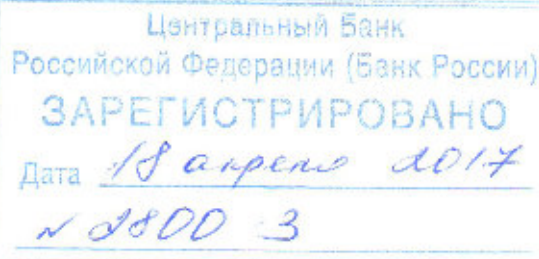 Центральный Банк
Российской Федерации (Банк России)
ЗАРЕГИСТРИРОВАНО
Дата 18 апреля 2017
№ 2800-З